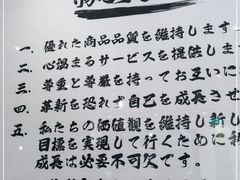 一、優れた商品品質を維持します
二、心温まるサービスを提供しま
三、尊重と尊厳を持ってお互いに
四、革新を恐れず自己を成長させ
五、私たちの価値観を維持し新し
目標を実現して行くために私
成長は必要不可欠です。